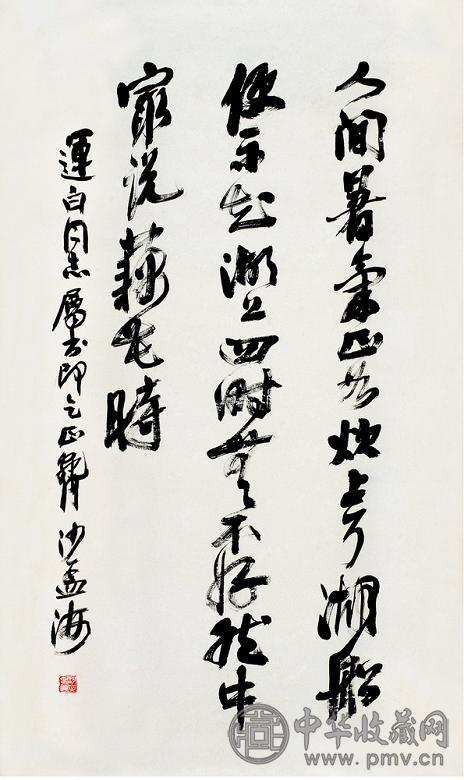 人間暑氣正如炊上了湖船
便不知湖上四时無不好就中
冣说藕花時
運白同志屬書即乞正 沙孟海
中华收藏网
www.pmv.cn